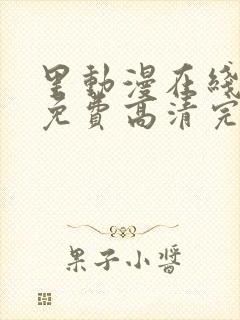 里動漫在綫
免費高清完
果子小醬